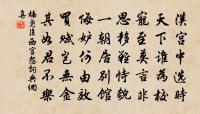 漢宮中選時
天下誰為校
寵至莫言非
恩移難恃貌
一朝居別館
悔妒何由效
買賦豈無金
其如君不樂
梅堯臣西宮怨詞典網